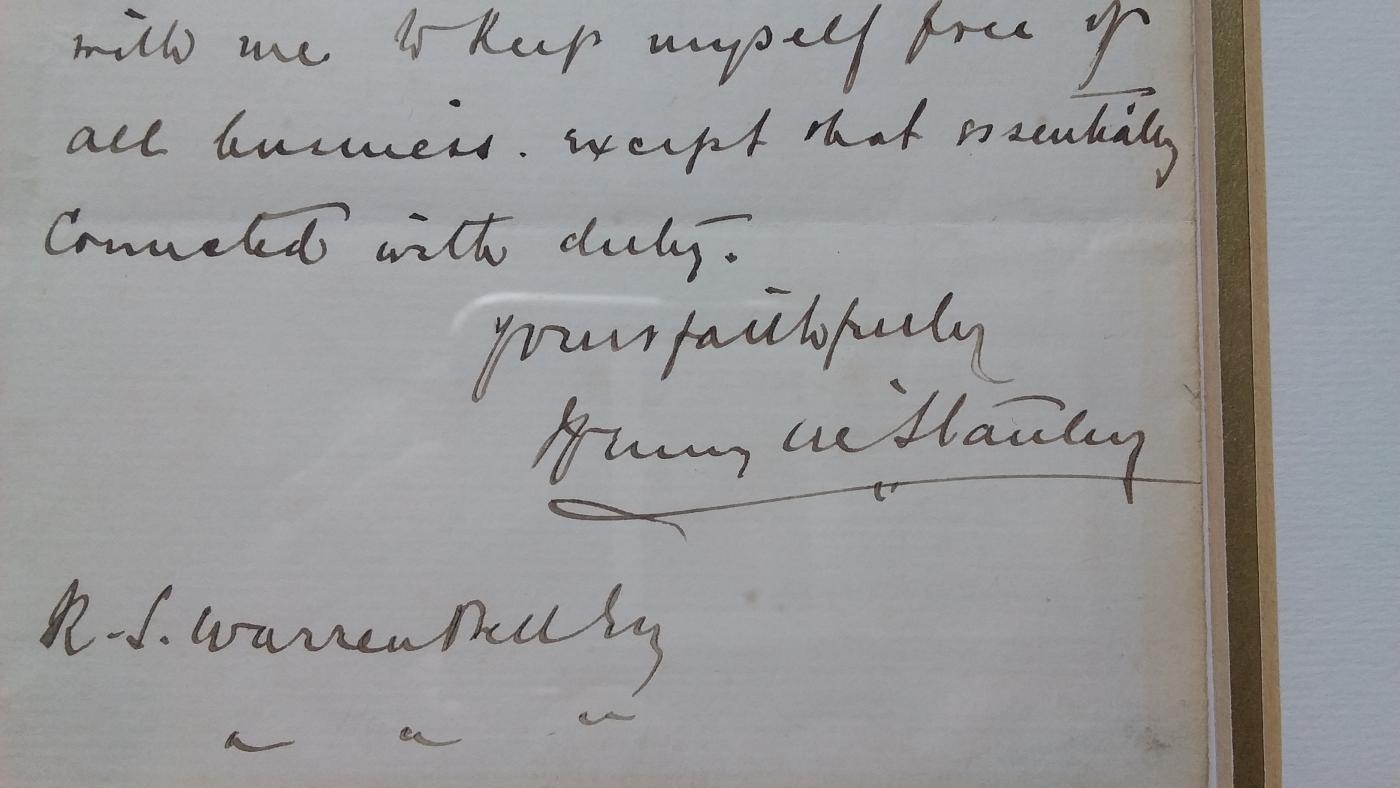 with me to keep myself free of
all business. except that essentially
Connected with duty.
yours faithfully
Henry M Stanley
R. S. Warren Bell Esq